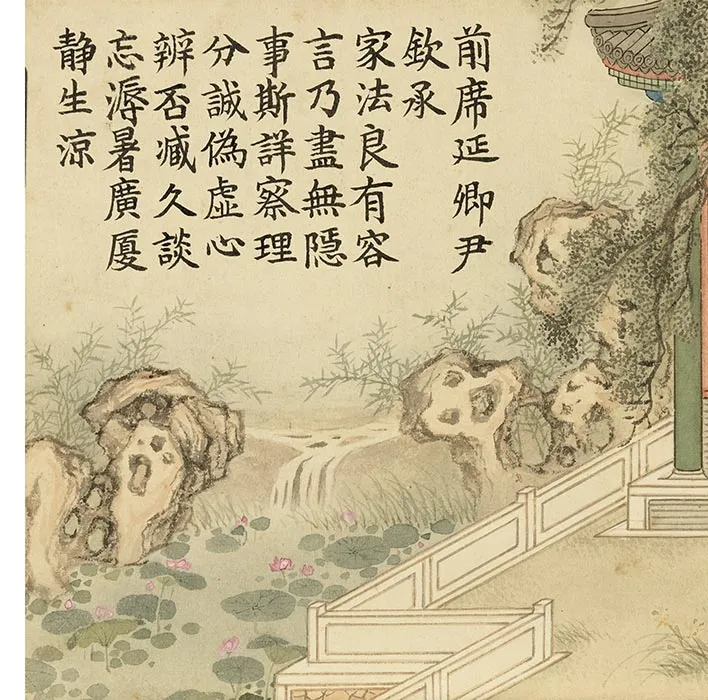 前席延卿尹
欽承
家法良有容
言乃盡無隱
事斯詳察理
分誠偽虛心
辨否臧久談
忘溽暑廣厦
静生涼